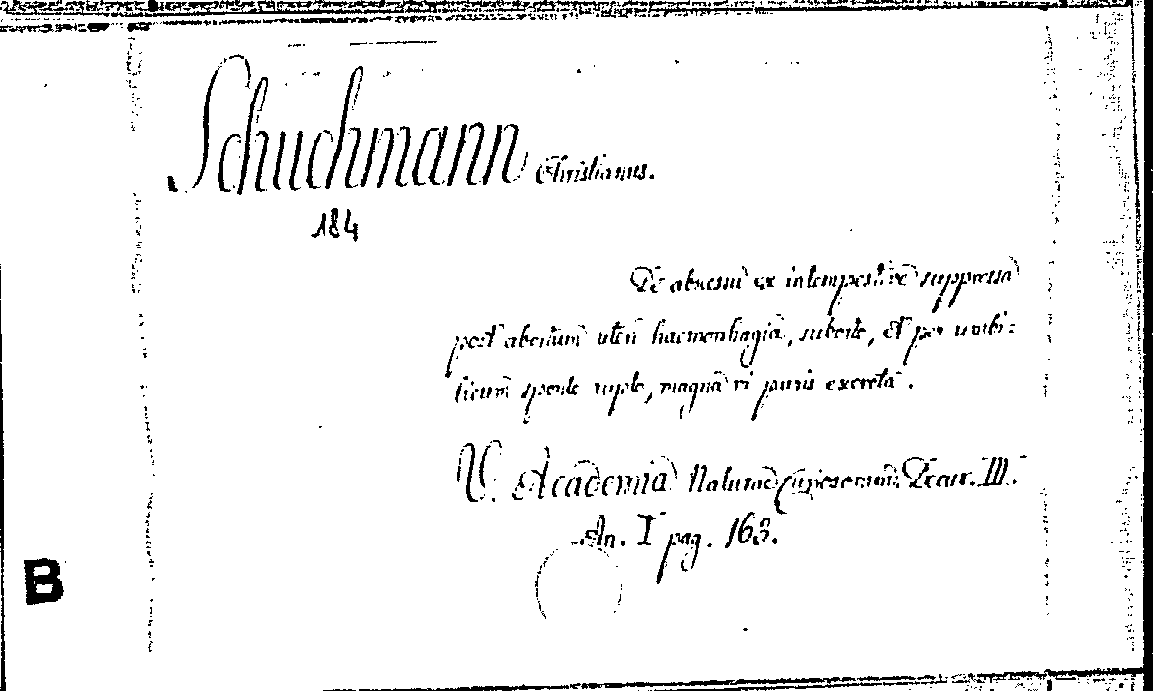 Schuchmann Christianus.
184
De abscessu ex intempestive suppressa
post abortum uteri haemorrhagia, suborto, et per umbi:
licum sponte rupto, magna vi puris excreta.
V. Academia Naturae Curiosorum. Decur. III.
An. I pag. 163.
B